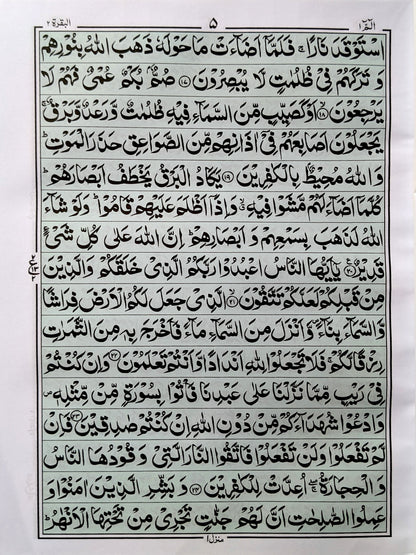 البقرة ٢
٥
الٓمّٓ ١
اسْتَوْقَدَ نَارًا ۚ فَلَمَّاۤ اَضَآءَتْ مَا حَوْلَهٗ ذَهَبَ اللّٰهُ بِنُوْرِهِمْ
وَ تَرَكَهُمْ فِیْ ظُلُمٰتٍ لَّا یُبْصِرُوْنَ ﴿۱۷﴾ صُمٌّۢ بُكْمٌ عُمْیٌ فَهُمْ لَا
یَرْجِعُوْنَ ﴿۱۸﴾ اَوْ كَصَیِّبٍ مِّنَ السَّمَآءِ فِیْهِ ظُلُمٰتٌ وَّ رَعْدٌ وَّ بَرْقٌ ۚ
یَجْعَلُوْنَ اَصَابِعَهُمْ فِیْۤ اٰذَانِهِمْ مِّنَ الصَّوَاعِقِ حَذَرَ الْمَوْتِ ؕ
وَ اللّٰهُ مُحِیْطٌۢ بِالْكٰفِرِیْنَ ﴿۱۹﴾ یَكَادُ الْبَرْقُ یَخْطَفُ اَبْصَارَهُمْ ؕ
كُلَّمَاۤ اَضَآءَ لَهُمْ مَّشَوْا فِیْهِ ۙ وَ اِذَاۤ اَظْلَمَ عَلَیْهِمْ قَامُوْا ؕ وَ لَوْ شَآءَ
اللّٰهُ لَذَهَبَ بِسَمْعِهِمْ وَ اَبْصَارِهِمْ ؕ اِنَّ اللّٰهَ عَلٰی كُلِّ شَیْءٍ
قَدِیْرٌ ﴿۲۰﴾ یٰۤاَیُّهَا النَّاسُ اعْبُدُوْا رَبَّكُمُ الَّذِیْ خَلَقَكُمْ وَ الَّذِیْنَ
مِنْ قَبْلِكُمْ لَعَلَّكُمْ تَتَّقُوْنَ ﴿۲۱﴾ الَّذِیْ جَعَلَ لَكُمُ الْاَرْضَ فِرَاشًا
وَّ السَّمَآءَ بِنَآءً ۪ وَّ اَنْزَلَ مِنَ السَّمَآءِ مَآءً فَاَخْرَجَ بِهٖ مِنَ الثَّمَرٰتِ
رِزْقًا لَّكُمْ ۚ فَلَا تَجْعَلُوْا لِلّٰهِ اَنْدَادًا وَّ اَنْتُمْ تَعْلَمُوْنَ ﴿۲۲﴾ وَ اِنْ كُنْتُمْ
فِیْ رَیْبٍ مِّمَّا نَزَّلْنَا عَلٰی عَبْدِنَا فَاْتُوْا بِسُوْرَةٍ مِّنْ مِّثْلِهٖ ۪
وَ ادْعُوْا شُهَدَآءَكُمْ مِّنْ دُوْنِ اللّٰهِ اِنْ كُنْتُمْ صٰدِقِیْنَ ﴿۲۳﴾ فَاِنْ
لَّمْ تَفْعَلُوْا وَ لَنْ تَفْعَلُوْا فَاتَّقُوا النَّارَ الَّتِیْ وَ قُوْدُهَا النَّاسُ
وَ الْحِجَارَةُ ۖۚ اُعِدَّتْ لِلْكٰفِرِیْنَ ﴿۲۴﴾ وَ بَشِّرِ الَّذِیْنَ اٰمَنُوْا وَ
عَمِلُوا الصّٰلِحٰتِ اَنَّ لَهُمْ جَنّٰتٍ تَجْرِیْ مِنْ تَحْتِهَا الْاَنْهٰرُ ؕ
منزل ١